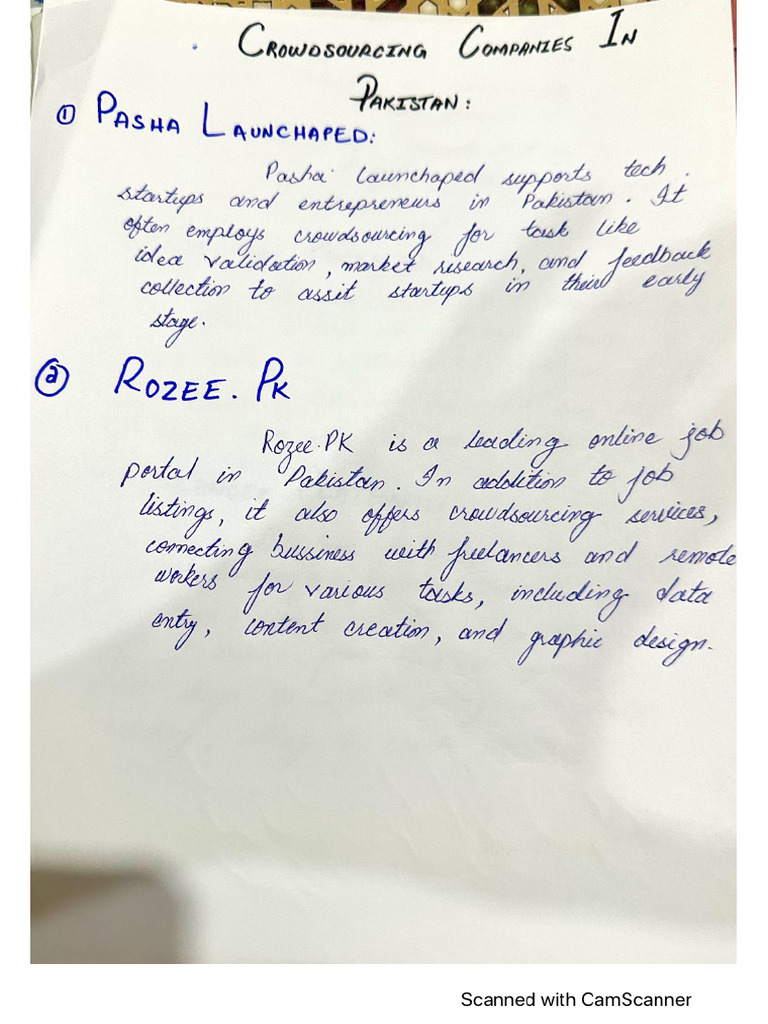 Crowdsourcing Companies In
Pakistan:
① Pasha Launchaped:
Pasha Launchaped supports tech
startups and entrepreneurs in Pakistan. It
often employs crowdsourcing for task like
idea validation, market research, and feedback
collection to assit startups in their early
stage.
② Rozee.Pk
Rozee.PK is a leading online job
portal in Pakistan. In addition to job
listings, it also offers crowdsourcing services,
connecting bussiness with freelancers and remote
workers for various tasks, including data
entry, content creation, and graphic design.
Scanned with CamScanner